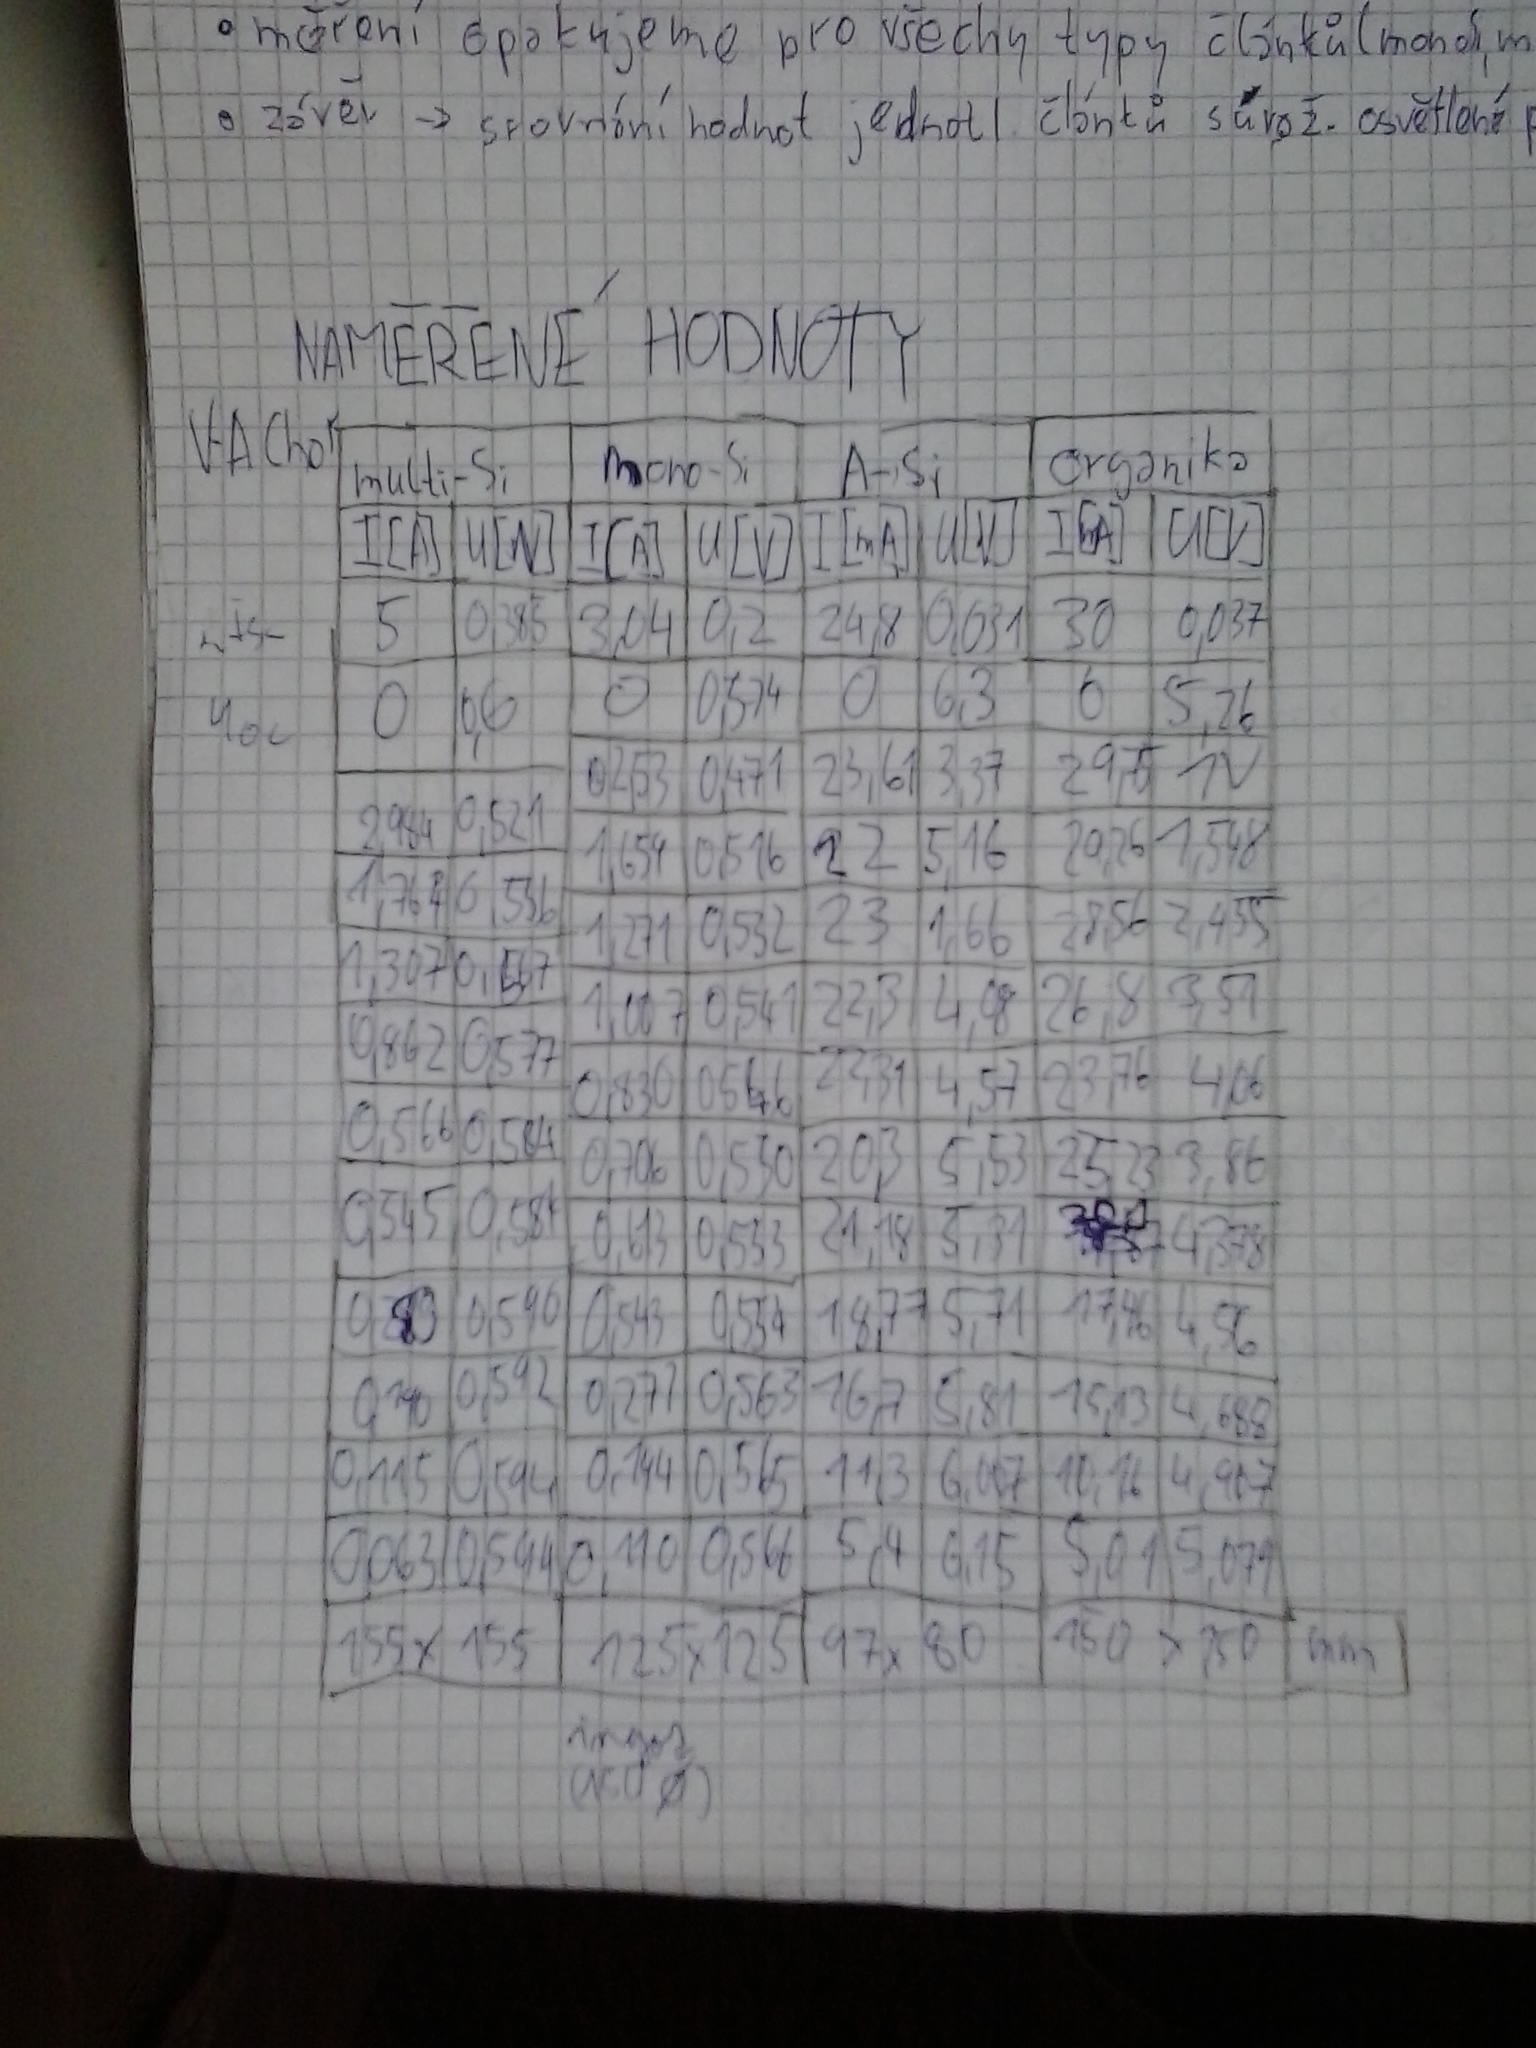 • měření opakujeme pro všechy typy článků (mono,m
• závěr → srovnání hodnot jednotl. článků s růz. osvětlené p
NAMĚŘENÉ HODNOTY
V-A Char
multi-Si mono-Si A-Si organika
I[A] U[V] I[A] U[V] I[mA] U[V] I[mA] U[V]
5 0,385 3,04 0,2 24,8 0,031 30 0,037
Uoc 0 0,6 0 0,574 0 6,3 0 5,26
0,471 23,61 3,37 29,5 1V
2,984 0,521 1,654 0,516 22 5,16 1,548
1,764 0,556 1,271 0,532 23 1,66 28,56 2,455
1,307 1,007 0,541 22,3 4,08 26,8 3,51
0,862 0,577 0,830 0,546 22,31 4,57 23,76 4,06
0,566 0,584 0,706 0,550 20,3 5,53 25,23 3,86
0,545 0,584 0,613 0,553 21,18 5,31 4,378
0,590 0,543 0,554 18,77 5,71 17,46 4,56
0,190 0,592 0,277 0,563 16,7 5,81 15,13 4,688
0,115 0,594 0,144 0,565 11,3 6,007 10,16 4,907
0,063 0,594 0,110 0,566 5,4 6,15 5,01 5,071
155x155 125x125 97x80 150x150 mm
ingot
(150 Ø)